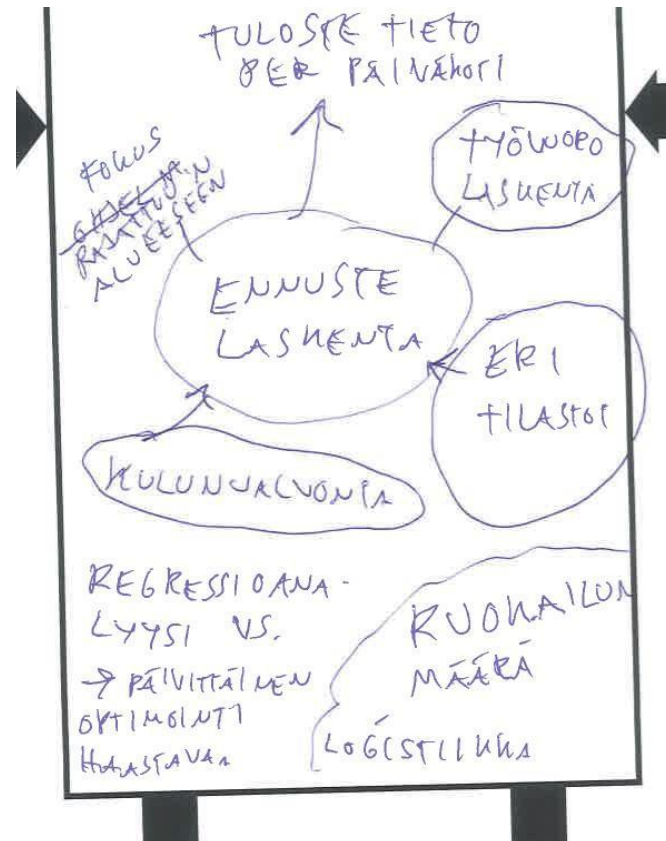 TULOSTE TIETO
PER PÄIVÄKOTI
FOKUS
RAJATTUUN
ALUEESEEN
TYÖVUORO
LASKENTA
ENNUSTE
LASKENTA
ERI
TILASTOT
KULUNVALVONTA
REGRESSIOANA-
LYYSI VS.
→ PÄIVITTÄINEN
OPTIMOINTI
HAASTAVAA
RUOKAILUN
MÄÄRÄ
LOGISTIIKKA